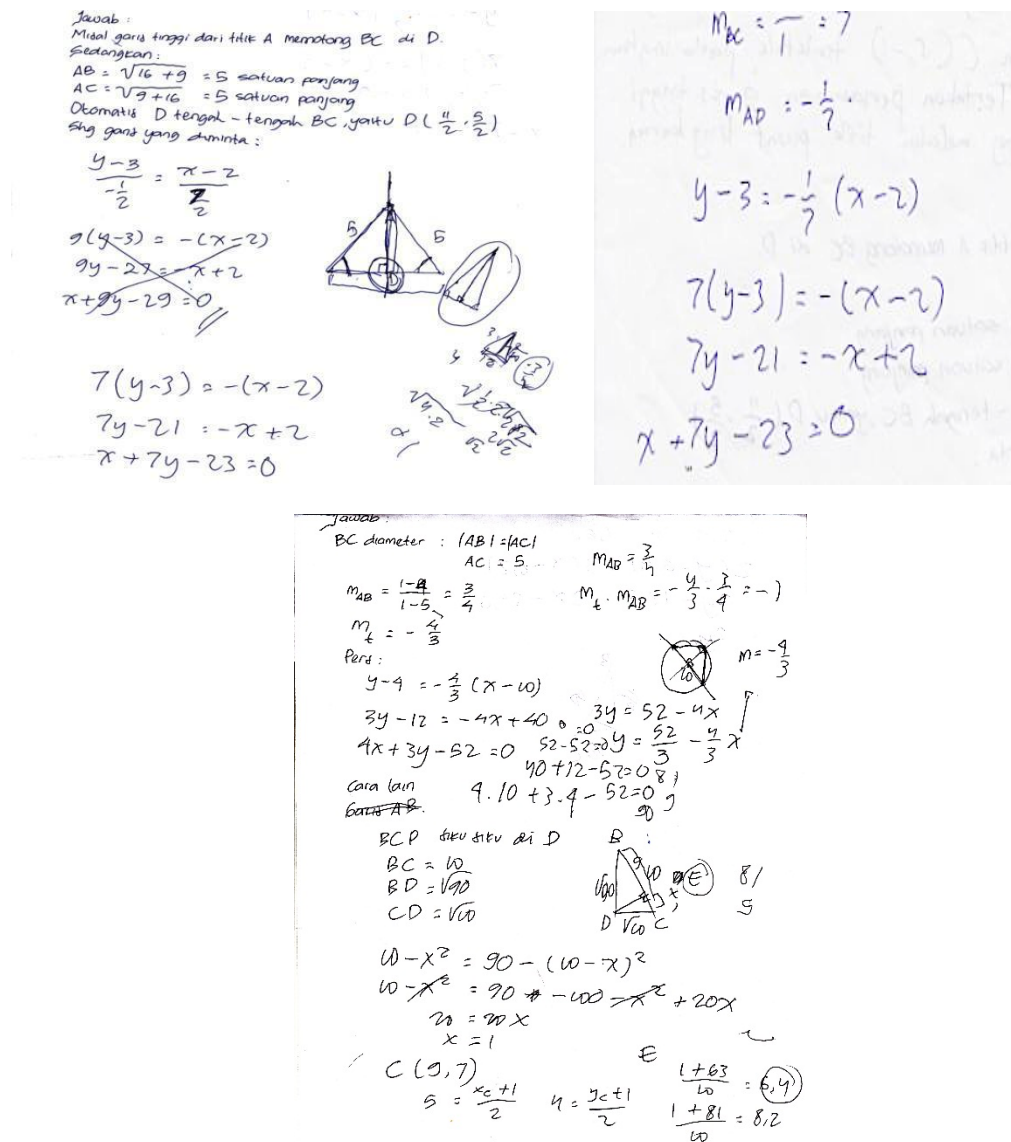 Jawab :
Misal garis tinggi dari titik A memotong BC di D.
Sedangkan :
AB = √16 + 9 = 5 satuan panjang
AC = √9 + 16 = 5 satuan panjang
Otomatis D tengah - tengah BC, yaitu D ( 11/2 , 5/2 )
Shg garis yang diminta :
(y-3)/(-1/2) = (x-2)/(7/2)
9(y-3) = -(x-2)
9y - 27 = -x + 2
x + 9y - 29 = 0
5
5
D
7(y-3) = -(x-2)
7y - 21 = -x + 2
x + 7y - 23 = 0
√4.2
√2
2√2
m_BC = — = 7
1
m_AD = -1/7 .
y - 3 = -1/7 (x-2)
7(y-3) = -(x-2)
7y - 21 = -x + 2
x + 7y - 23 = 0
Jawab :
BC diameter : |AB| = |AC|
AC = 5
m_AB = 3/4
m_AB = (1-4)/(1-5) = 3/4
m_t . m_AB = -4/3 . 3/4 = -1
m_t = - 4/3
Pers :
m = -4/3
10
y - 4 = -4/3 (x - 10)
3y - 12 = -4x + 40
3y = 52 - 4x
4x + 3y - 52 = 0
52 - 52 = 0
y = 52/3 - 4/3 x
40 + 12 - 52 = 0
Cara lain
4.10 + 3.4 - 52 = 0
Garis AB.
BCD siku siku di D
BC = 10
BD = √90
CD = √10
B
9
10
√90
E
x
D √10 C
81
9
10 - x² = 90 - (10 - x)²
10 - x² = 90 - 100 - x² + 20x
20 = 20x
x = 1
C (9,7)
5 = (x_c + 1)/2
4 = (y_c + 1)/2
E
(1 + 63)/10 = 6,4
(1 + 81)/10 = 8,2